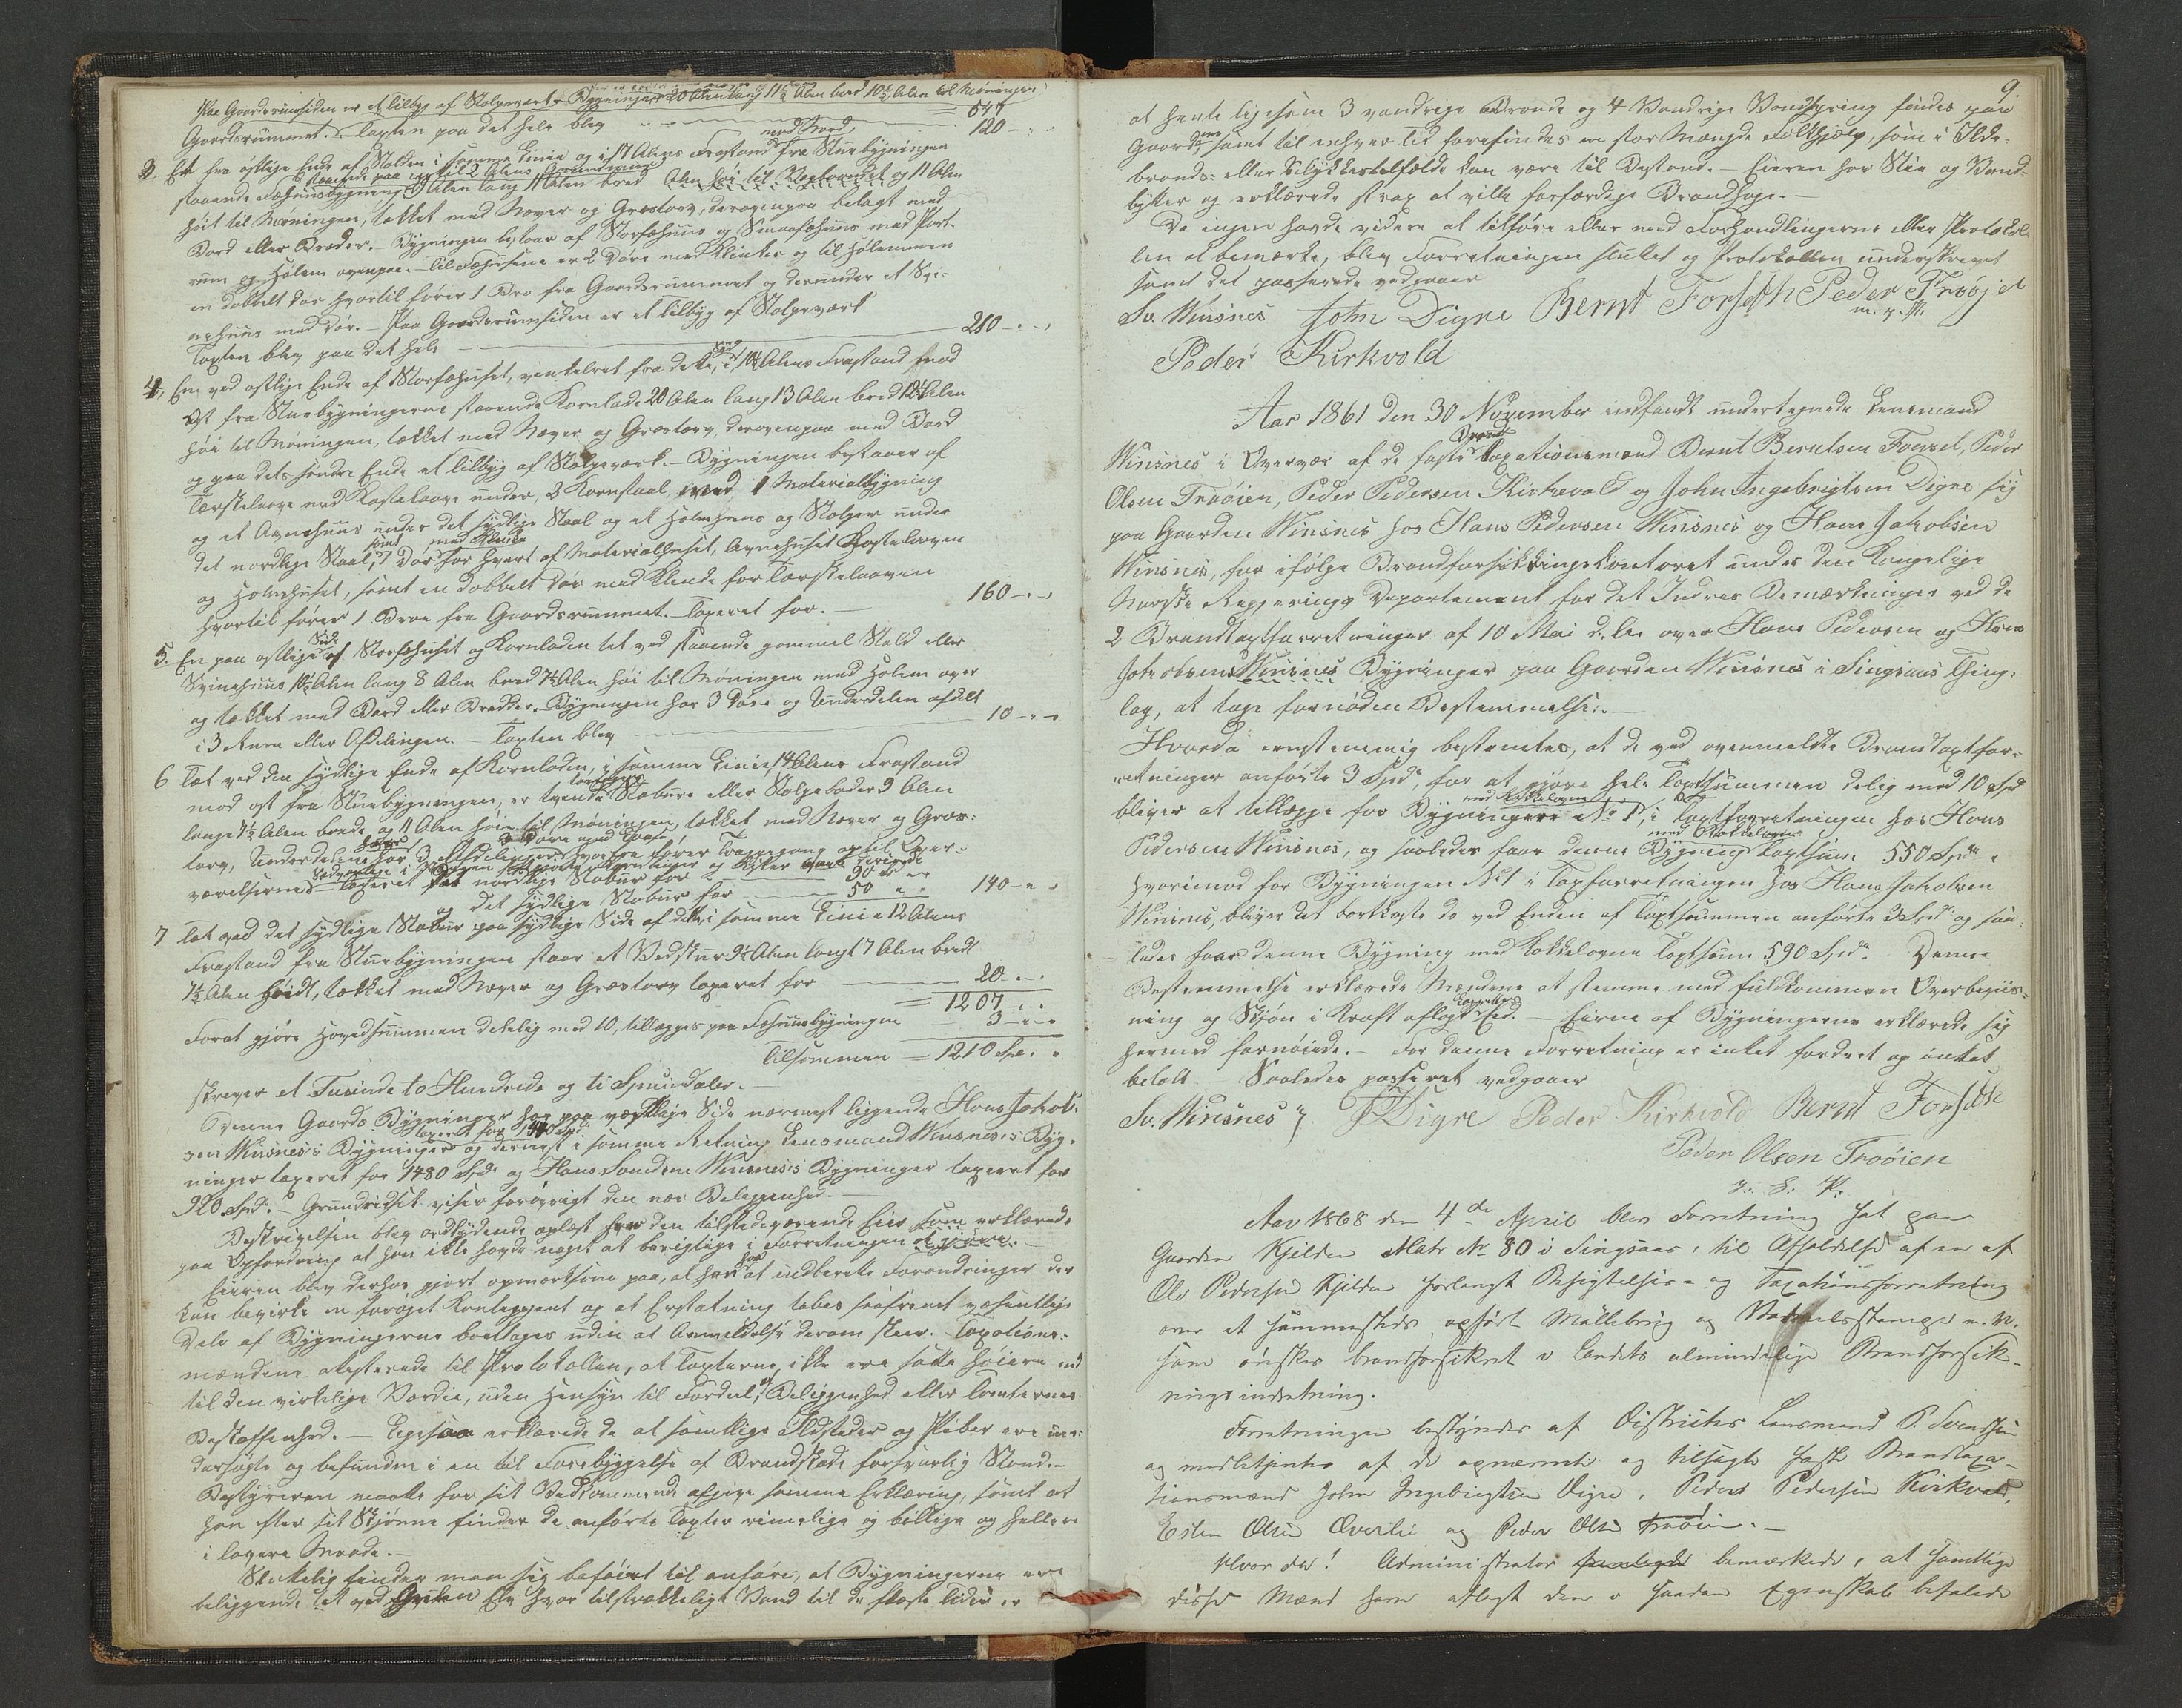 Paa Gaardsrumsiden er et tilbyg af Stolpeværk Bygningen 20 Alen lang 11½ Alen bred 10½ Alen til Møningen
Gaardsrummet. Taxten paa det hele blev 547
120 - "
3. Et fra østlige Ende af Stalden i samme Linie og i 17 Alens Frastand mod Nord fra Stuebygningen
staaende Fæhuusbygning staaende paa indtil 2 Alens Grundmuur Alen lang 11 Alen bred Alen høi til Næstværket og 11 Alen
høit til Møningen, tækket med Næver og Græstorv, derovenpaa belagt med
Bord eller Bræder. - Bygningen bestaar af Storfæhuus og Smaafæhuus med Port-
rum og Hølem ovenpaa. - Til Fæhusene er 2 Døre med Klinker og til Hølemmen
en dobbelt Dør hvortil fører 1 Bro fra Gaardsrummet og derunder et Svi-
nehuus med Dør. - Paa Gaardsrumsiden er et tilbyg af Stolpeværk
Taxten blev paa det hele 210 - "
4, En ved østlige Ende af Storfæhuset, ventelret fra dette, i 10½ Alens Frastand mod
Øst fra Stuebygningerne staaende Kornlade 20 Alen lang 13 Alen bred 12½ Alen
høi til Møningen, tækket med Næver og Græstorv, derovenpaa med Bord
og paa dets søndre Ende et tilbyg af Stolpeværk. - Bygningen bestaaer af
Tærskelaave med Kastelaave under, 2 Kornstaal, med 1 Materialbygning
og et Avnehuus under det sydlige Staal og et Halmhuus og Stolper under
det nordlige Staal, samt 1 Dør med Klinke for hvert af Materialhuset, Avnehuset Kastelaaven
og Halmhuset, samt en dobbelt Dør med Klinke for Tærskelaaven
hvortil fører 1 Broe fra Gaardsrummet. Taxeret for. - 160 - "
5. En paa østlige Side af Storfæhuset og Kornladen tæt ved staaende gammel Stald eller
Svinehuus 10½ Alen lang 8 Alen bred 7½ Alen høi til Møningen med Hølem over
og tækket med Bord eller Brædder. Bygningen har 3 Døre og Underdelen afdelt
i 3 Rum eller Afdelinger. - Taxten blev 10 - "
6 Tæt ved den sydlige Ende af Kornladen, i samme Linie, 14 Alens Frastand
mod øst fra Stuebygningen, er tvende Stabure eller Stolpeboder 9 Alen
lange 7½ Alen brede og 11 Alen høie til Møningen, tækket med Næver og Græs-
torv, Underdelene har 3 Afdelinger hvorfra fører Trappegang op til Over-
værelserne Taxeret det nordlige Stabur for 90 "
og det sydlige Stabur for 50 " 140 - "
7 Tæt ved det sydlige Stabur paa sydlige Side af dette i samme Linie 12 Alens
Frastand fra Stuebygningen staar et Vedskuur 9½ Alen langt 7 Alen bredt
7½ Alen høidt, tækket med Næver og Græstorv taxeret for 20 - "
= 1207 - "
Forat gjøre Hovedsummen delelig med 10, tillægges paa Fæhuusbygningen 3 - "
Tilsammen = 1210 Spd. "
skriver et Tusinde to Hundrede og ti Speciedaler. -
Denne Gaards Bygninger har paa vestlige Side nærmest liggende Hans Jakob-
sen Winsnes's Bygninger taxeret for 1440 Spd og dernest i samme Retning Lensmand Winsnes's Byg-
ninger taxeret for 1480 Spd. og Hans Svendsen Winsnes's Bygninger taxeret for
920 Spd. - Grundridset viser forøvrigt den nær Beliggenhed. -
Beskrivelsen blev ordlydende oplæst for den tilstedeværende Eier som erklærede
paa Opfordring at han ikke havde noget at berigtige i Forretningen at gjøre.
Eieren blev derhos gjort opmærksom paa, at han har at indberette Forandringer der
kan bevirke en forøget Kontingent og at Erstatning tabes saafremt væsentlige
Dele af Bygningerne borttages uden at Anmeldelse derom skeer. Taxations-
mændene attesterede til Protokollen, at Taxterne, ikke ere satte høiere end
til den virkelige Værdie, uden Hensyn til Fordeel, af Beliggenhed eller Tomternes
Beskaffenhed. - Ligesaa erklærede de at samtlige Ildsteder og Piber ere un-
dersøgte og befundne i en til Forebyggelse af Brandskade forsvarlig Stand. -
Bestyreren maatte for sit Vedkommende afgive samme Erklæring, samt at
han efter sit Skjønne finder de anførte Taxter rimelige og billige og heller
i lavere Maade. -
Sluttelig finder man sig beføiet til anføre, at Bygningerne ere
beliggende tæt ved Elv hvor tilstrækkeligt Vand til de fleste Tider er
9.
at hente ligesom 3 vandrige Brønde og 4 Vandrige Vandspring findes paa
Gaardene samt til enhver tid forefindes en stor Mængde Folkhjælp, som i Ilde-
brands- eller Ulykkestilfælde kan være til Bestand. - Eieren har Stie og Vand-
bøtter og erklærede strax at ville forfærdige Brandhage. -
Da ingen havde videre at tilføre eller ved Forhandlingerne eller Protokol-
len at bemærke, blev Forretningen sluttet og Protokollen underskrevet
samt det passerede vedgaaer
Sv. Winsnes John Digre Bernt Forseth Peder Trøøjet
m. p. P.
Peder Kirkvold
Aar 1861 den 30 November indfandt undertegnede Lensmand
Winsnes i Overvær af de faste Brand Taxationsmænd Bernt Berntsen Forset, Peder
Olsen Trøøien, Peder Pedersen Kirkvold og John Ingebrigtsen Digre sig
paa Gaarden Winsnes hos Hans Pedersen Winsnes og Hans Jakobsen
Winsnes, for ifølge Brandforsikkringskontoret under den Kongelige
Norske Regjerings Departement for det Indres Bemærkninger ved de
2 Brandtaxtforretninger af 10 Mai d. A. over Hans Pedersen og Hans
Jakobsens Winsnes Bygninger paa Gaarden Winsnes i Singsaas Thing-
lag, at tage fornøden Bestemmelse. -
Hvorda eenstemmig bestemtes, at de ved ovenmeldte Brandtaxtfor-
retninger anførte 3 Spd., for at gjøre hele Taxtsummen delig med 10 Spd
bliver at tillægge for Bygningen med Kakkelovne No 1, i Taxtforretningen hos Hans
Pedersen Winsnes, og saaledes faar denne Bygning med Kakkelovne Taxtsum 550 Spd.
hvorimod for Bygningen No 1 i Taxforretningen hos Hans Jakobsen
Winsnes, bliver det bortkaste de ved Enden af Taxtsummen anførte 3 Spd. og saa-
ledes faar denne Bygning med Kakkelovne Taxtsum 590 Spd. Denne
Bestemmelse erklærede Mændene at stemme med fuldkommen Overbeviis-
ning og Skjøn i Kraft aflagt Taxations Eed. - Eierne af Bygningerne erklærede sig
hermed fornøiede. - For denne Forretning er intet fordret og intet
betalt. Saaledes passeret vedgaaer
Sv. Winsnes J Digre Peder Kirkvold Bernt Forsette
Peder Olsen Trøøien
J. H. P.
Aar 1868 den 4de April blev Forretning sat paa
Gaarden Kjelden Matr No 80 i Singsaas, til Afholdelse af en af
Ole Pedersen Kjelden forlangt Besigtelses- og Taxationsforretning
over et sammesteds opført Møllebrug og Vadmelsstampe m. v.
som ønskes brandforsikret i Landets almindelige Brandforsik-
ringsindretning.
Forretningen bestyredes af Distriktets Lensmand P. Svendsen
og medbetjentes af de opnævnte og tilsagte faste Brandtaxa-
tionsmænd John Ingebrigtsen Digre, Peder Pedersen Kirkvold,
Esten Olsen Øverlie og Peder Olsen Trøøien. -
Hvor da! Administrator bemærkede, at samtlige
disse Mænd have aflagt den i saadan Egenskab befalede